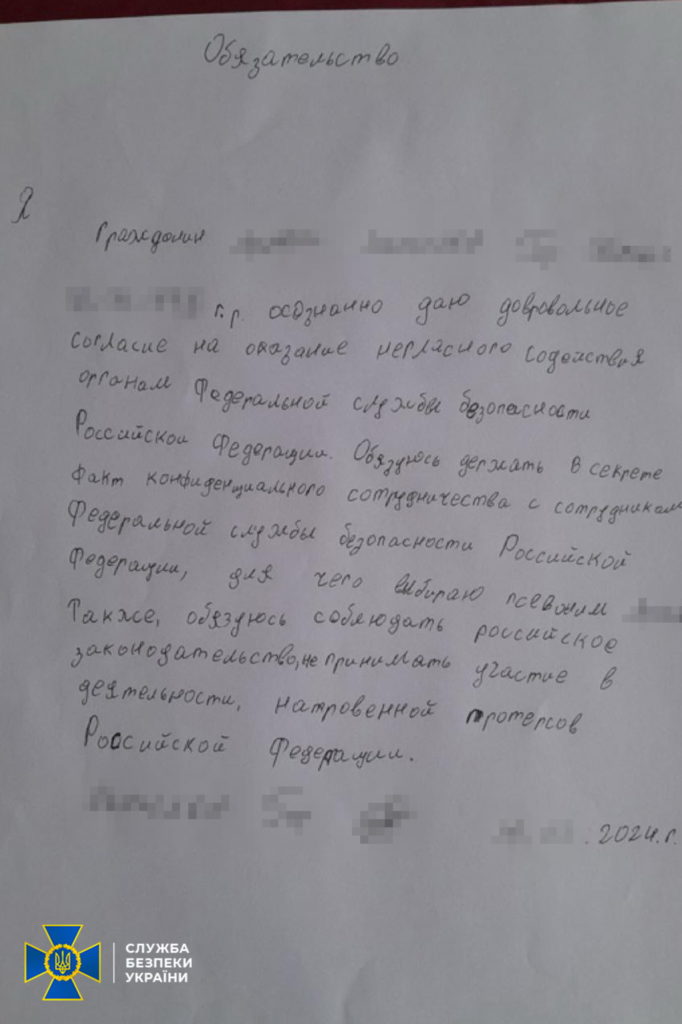 Обязательство
Я
Гражданин
г.р. осознанно даю добровольное
согласие на оказание негласного содействия
органам Федеральной службы безопасности
Российской Федерации. Обязуюсь держать в секрете
факт конфиденциального сотрудничества с сотрудником
Федеральной службы безопасности Российской
Федерации, для чего выбираю псевдоним
Также, обязуюсь соблюдать российское
законодательство, не принимать участие в
деятельности, натровенной протерсов
Российской Федерации.
.2024.г.
СЛУЖБА
БЕЗПЕКИ
УКРАЇНИ